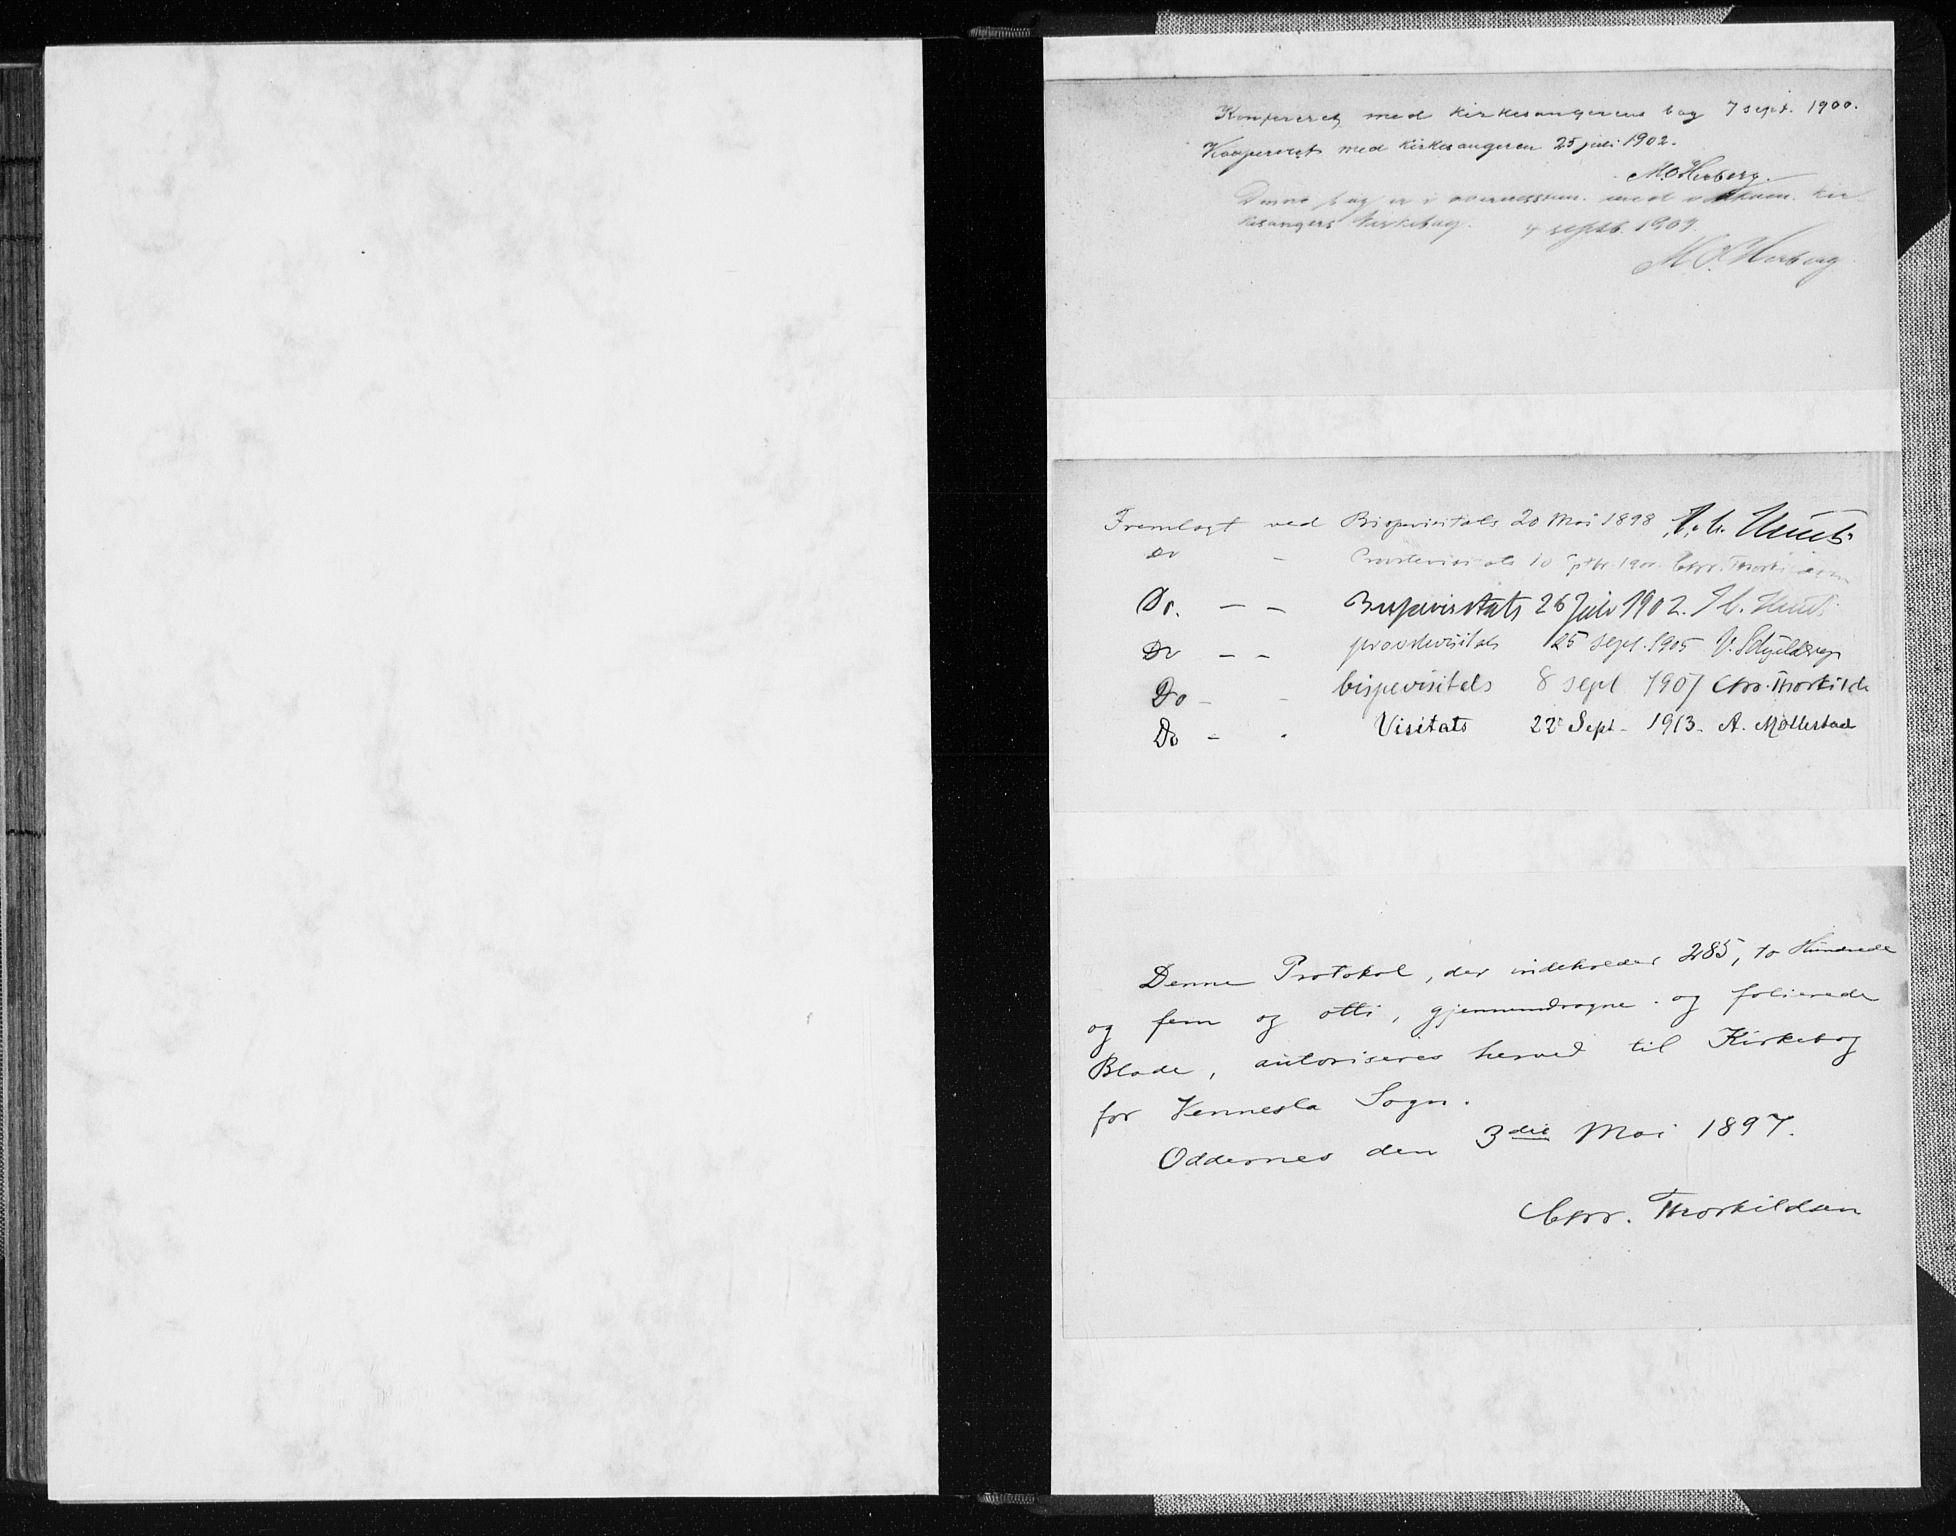 Konfereret med kirkesangerens bog 7 sept. 1900.
Konfereret med kirkesangeren 25 juli 1902.
M. O. Herberg.
Denne bog er i overensstem. med vedkom. kir-
kesangers kirkebog. 4 septb. 1909.
M. O. Herberg
Fremlagt ved Bispevisitats 20 Mai 1898
Do - Provstevisitats 10 Sptbr 1900. Chr. Thorkildsen
Do. - - Bispevisitats 26 Juli 1902.
Do - - provstevisitats 25 sept. 1905 V. Schjelderup
Do - - bispevisitats 8 sept 1907 Chr. Thorkilds
Do - - Visitats 22 Sept - 1913 - A. Møllestad
Denne Protokol, der indeholder 285, to Hundrede
og fem og otti, gjennemdragne og folierede
Blade, autoriseres herved til Kirkebog
for Vennesla Sogn.
Oddernes den 3die Mai 1897.
Chr. Thorkildsen